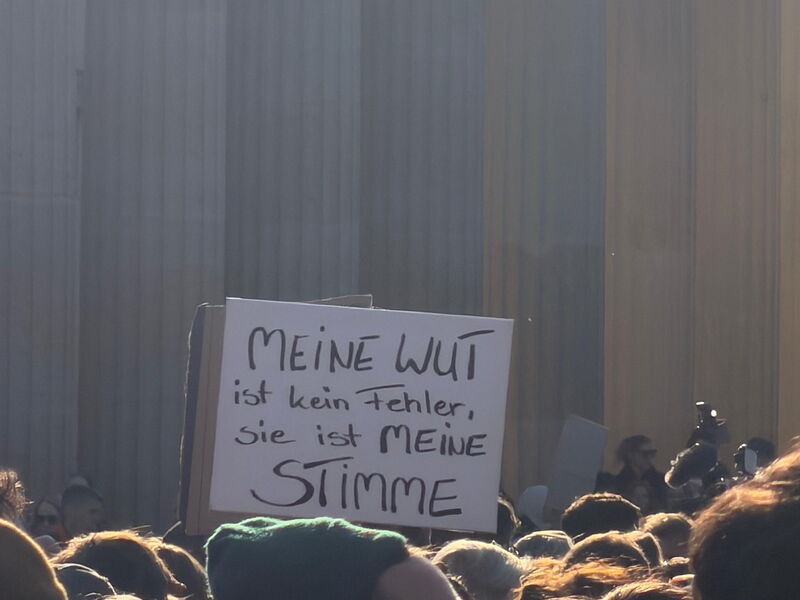 MEINE WUT
ist kein Fehler,
sie ist MEINE
STIMME